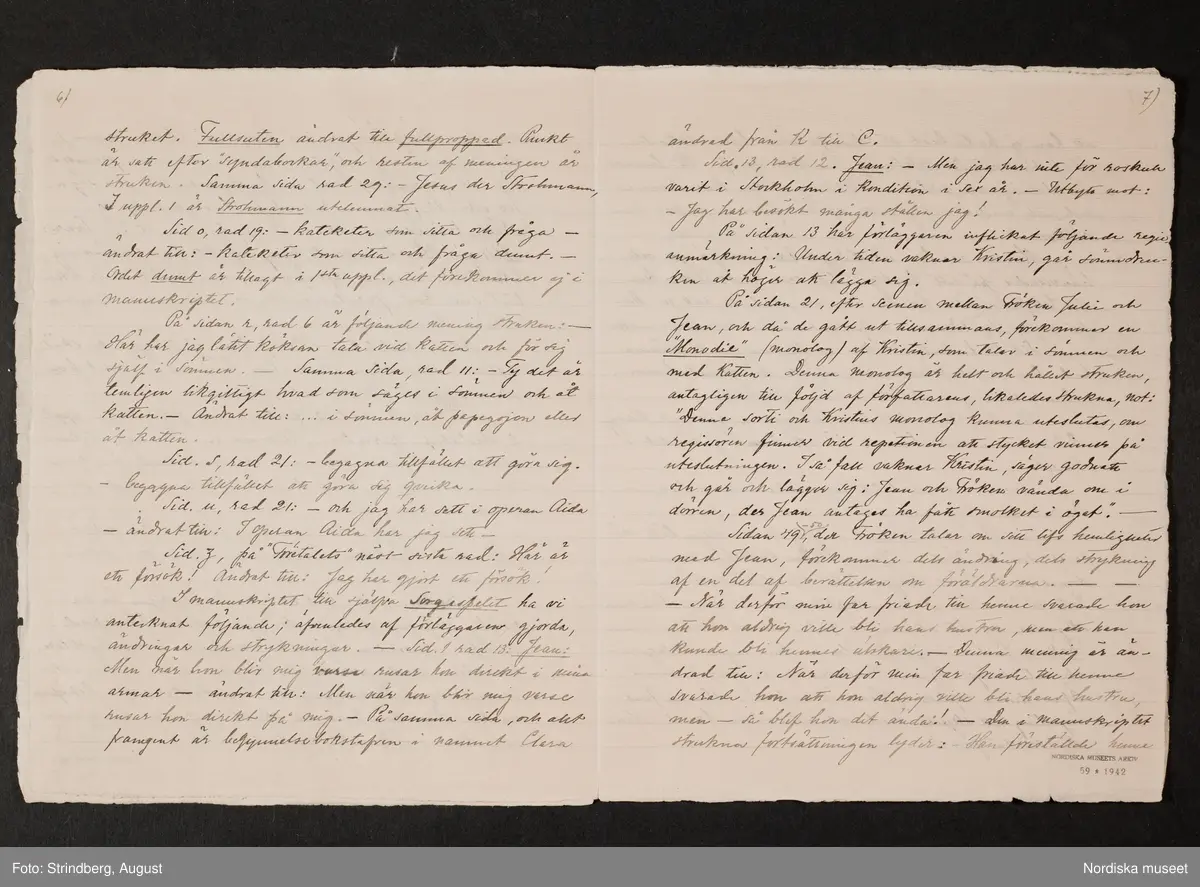 6)
struket. Fullsuten ändrat till fullproppad. Punkt
är satt efter "syndabockar", och resten af meningen är
struken. Samma sida rad 29: – Jesus der Strohmann,
I uppl. 1 är Strohmann utelemnat.
Sid o, rad 19: – kateketer som sitta och fråga –
ändrat till: – kateketer som sitta och fråga dumt. –
Ordet dumt är tillagt i 1sta uppl., det förekommer ej i
manuskriptet.
På sidan r, rad 6 är följande mening struken: –
Här har jag latit köksan tala vid katten och för sig
sjelf i sömnen. – Samma sida, rad 11: – Ty det är
temligen likgiltigt hvad som säges i sömnen och åt
katten. – Ändrat till: ... i sömnen, åt papegojan eller
åt katten.
Sid. s, rad 21: – begagna tillfället att göra sig.
– begagna tillfället att göra sig qvicka.
Sid. u, rad 21: – och jag har sett i operan Aida
– ändrat till: I operan Aida har jag sett –
Sid. z, på "Förtalets" näst sista rad: Här är
ett försök! Ändrat till: Jag har gjort ett försök!
I manuskriptet till sjelfva Sorgespelet ha vi
antecknat följande, äfvenledes af förläggaren gjorda,
ändringar och strykningar. – Sid. 9 rad 13: Jean:
Men när hon blir mig varse rusar hon direkt i mina
armar – ändrat till: Men när hon blir mig varse
rusar hon direkt på mig. – På samma sida, och allt
framgent är begynnelsebokstafven i namnet Clara
7)
ändrad från K till C.
Sid. 13, rad 12. Jean: – Men jag har inte för roskull
varit i Stockholm i kondition i sex år. – Utbytt mot:
– Jag har besökt många ställen jag!
På sidan 13 har förläggaren inflickat följande regie
anmärkning: Under tiden vaknar Kristin, går sömndruc-
ken åt höger att lägga sig.
På sidan 21, efter scenen mellan Fröken Julie och
Jean, och då de gått ut tillsammans, förekommer en
"Monodie" (monolog) af Kristin, som talar i sömnen och
med katten. Denna monolog är helt och hållet struken,
antagligen till följd af författarens, likaledes strukna, not:
"Denna sorti och Kristins monolog kunna uteslutas, om
regissören finner vid repetionen att stycket vinner på
uteslutningen. I så fall vaknar Kristin, säger godnatt
och går och lägger sig; Jean och Fröken vända om i
dörren, der Jean antages ha fått smolket i ögat". –
Sidan 49–50, der Fröken talar om sitt lifs hemligheter
med Jean, förekommer dels ändring, dels strykning
af en del af berättelsen om föräldrarna. – –
– När derför min far friade till henne svarade hon
att hon aldrig ville bli hans hustru, men att han
kunde bli hennes älskare. – Denna mening är än-
drad till: När derför min far friade till henne
svarade hon att hon aldrig ville bli hans hustru,
men – så blef hon det ändå! – Den i manuskriptet
strukna fortsättningen lyder: – Han föreställde henne
NORDISKA MUSEETS ARKIV
59 * 1942
Foto: Strindberg, August
Nordiska museet